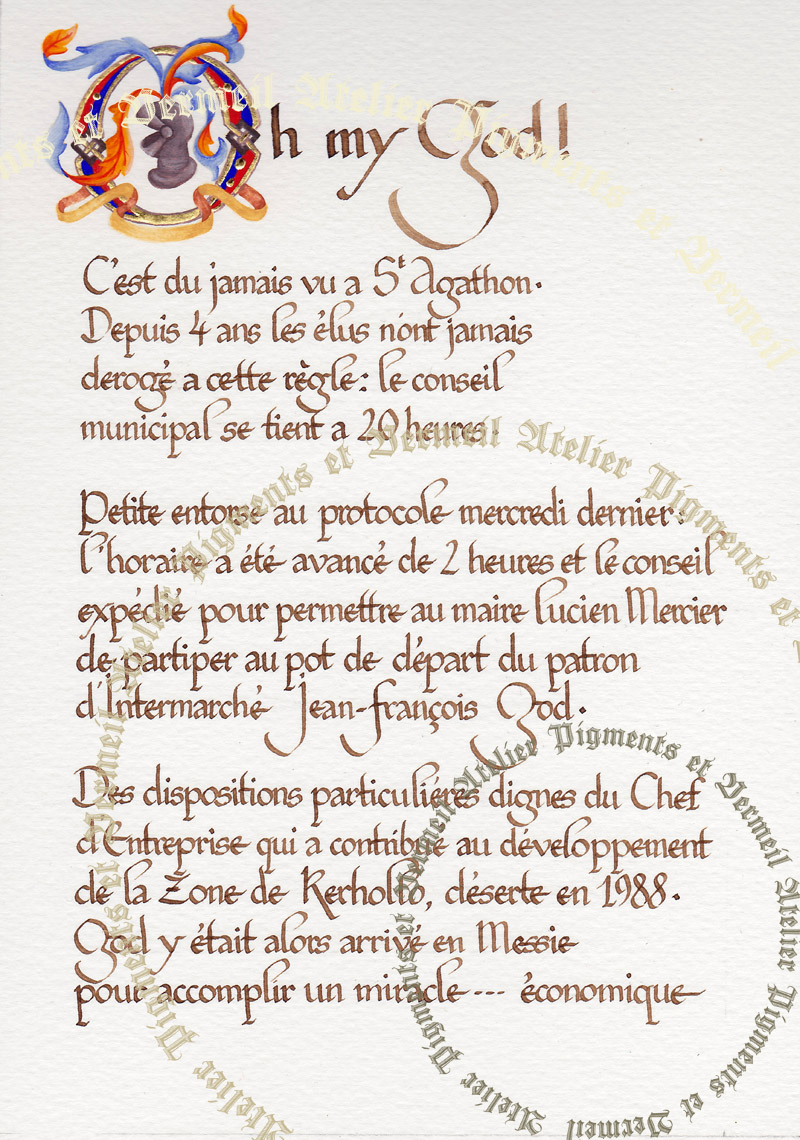 Oh my God!
C'est du jamais vu a St Agathon.
Depuis 4 ans les élus n'ont jamais
derogé a cette règle: le conseil
municipal se tient a 20 heures.
Petite entorse au protocole mercredi dernier:
l'horaire a été avancé de 2 heures et le conseil
expédié pour permettre au maire Lucien Mercier
de partiper au pot de départ du patron
d'Intermarché Jean-François God.
Des dispositions particulières dignes du Chef
d'Entreprise qui a contribué au développement
de la Zone de Kerhollo, déserte en 1988.
God y était alors arrivé en Messie
pour accomplir un miracle... économique
Pigments et Vermeil Atelier Pigments et Vermeil
Atelier Pigments et Vermeil Atelier Pigments et Vermeil Atelier Pigments et
Atelier Pigments et Vermeil Atelier Pigments et Vermeil Atelier Pigments et Vermeil